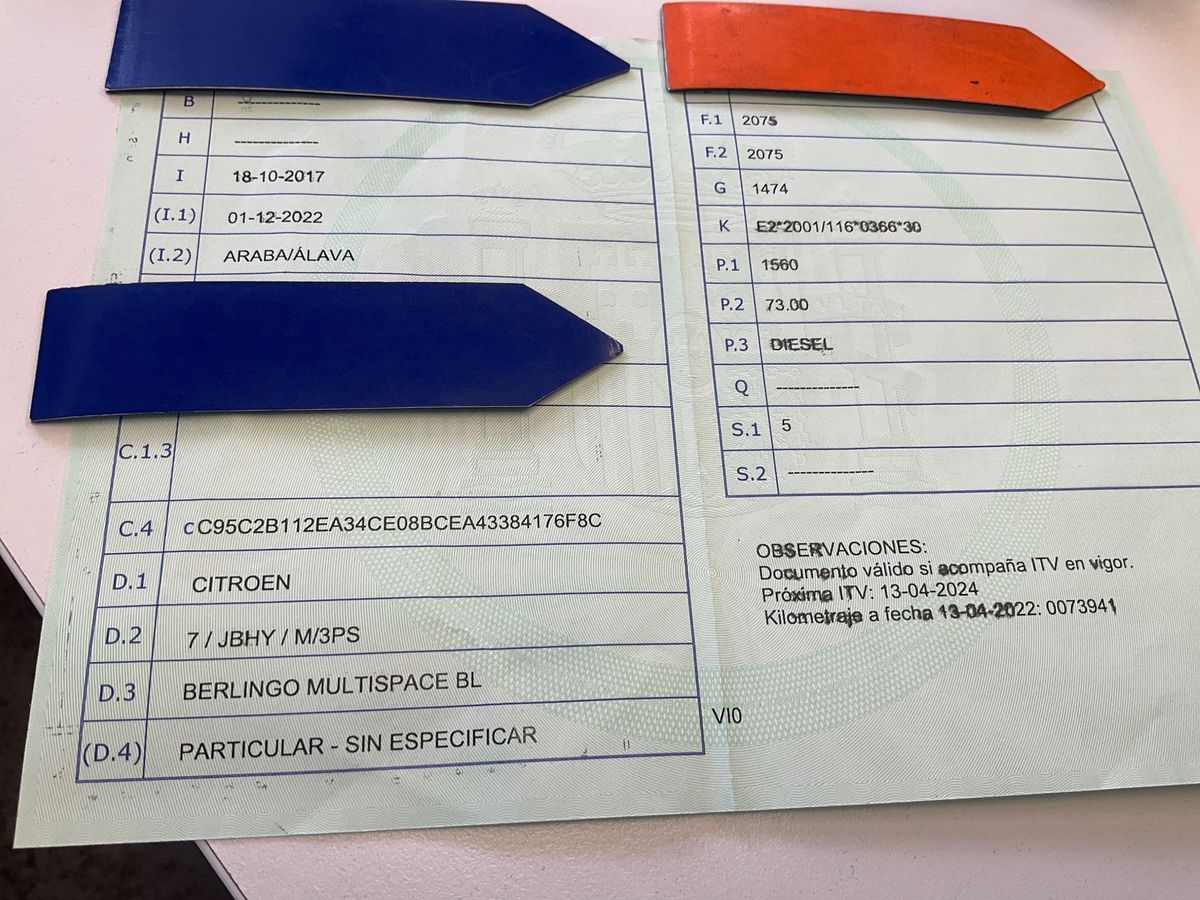 B --------------
H --------------
I 18-10-2017
(I.1) 01-12-2022
(I.2) ARABA/ÁLAVA
C.1.3
C.4 cC95C2B112EA34CE08BCEA43384176F8C
D.1 CITROEN
D.2 7 / JBHY / M/3PS
D.3 BERLINGO MULTISPACE BL
(D.4) PARTICULAR - SIN ESPECIFICAR
F.1 2075
F.2 2075
G 1474
K E2*2001/116*0366*30
P.1 1560
P.2 73.00
P.3 DIESEL
Q --------------
S.1 5
S.2 --------------
OBSERVACIONES:
Documento válido si acompaña ITV en vigor.
Próxima ITV: 13-04-2024
Kilometraje a fecha 13-04-2022: 0073941
VI0